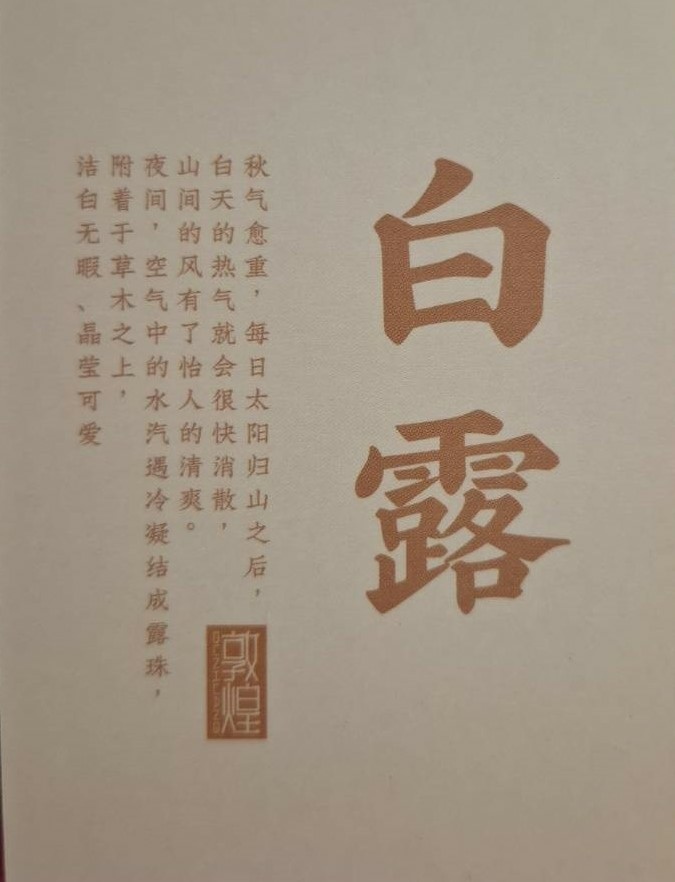 白露
秋气愈重，每日太阳归山之后，
白天的热气就会很快消散，
山间的风有了怡人的清爽。
夜间，空气中的水汽遇冷凝结成露珠，
附着于草木之上，
洁白无暇、晶莹可爱
敦煌